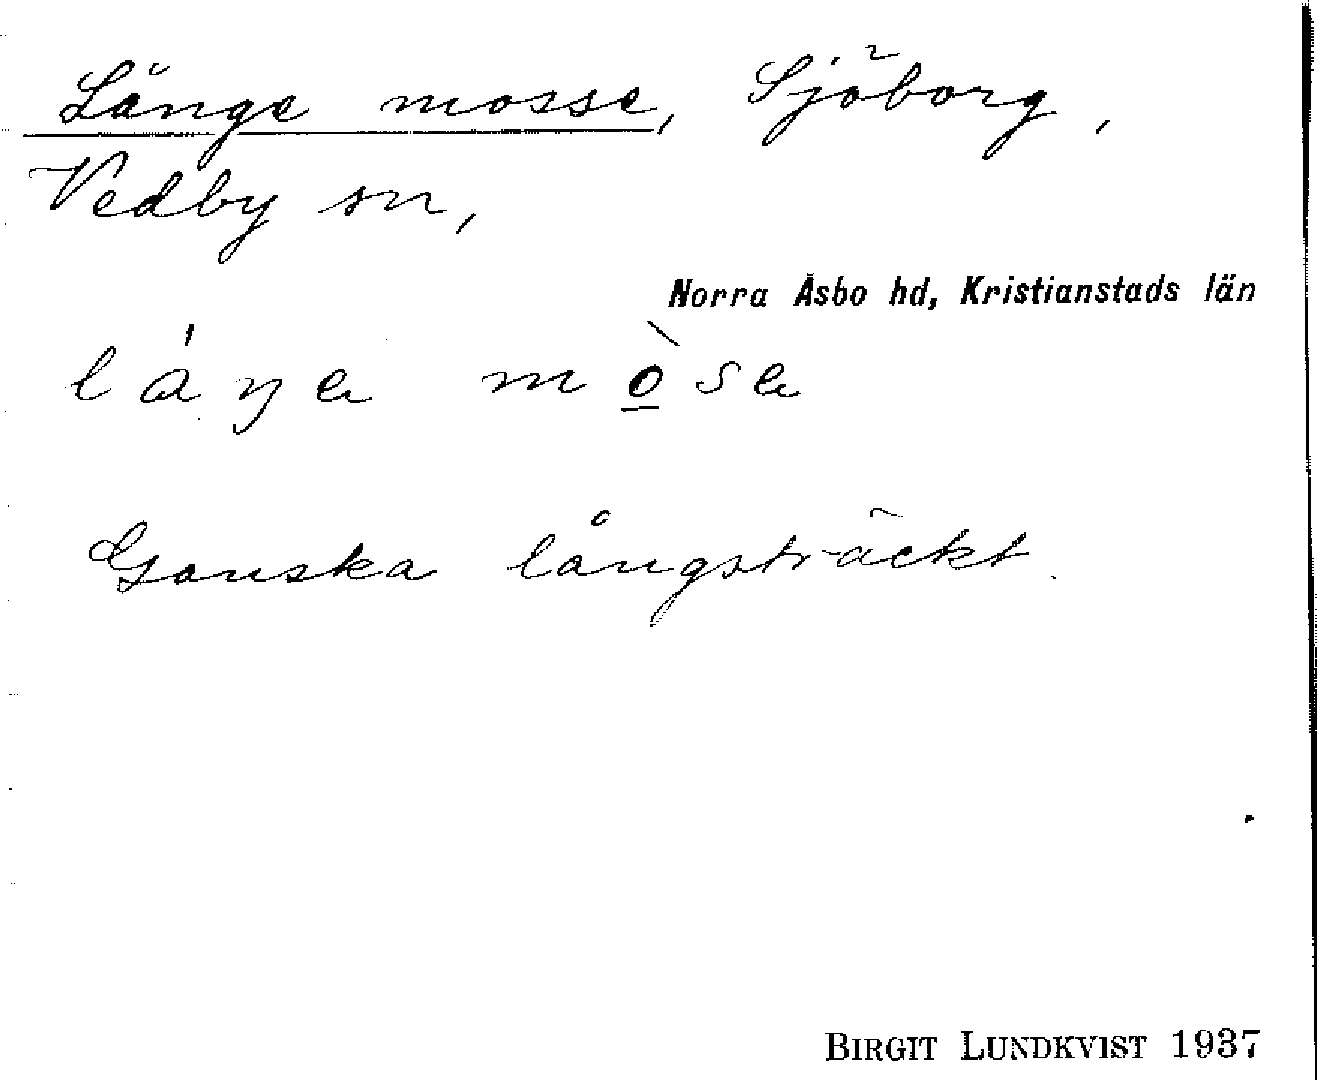 Länge mosse, Sjöborg,
Vedby sn,
Norra Åsbo hd, Kristianstads län
láŋɐ mò̲sɐ
Ganska långsträckt.
BIRGIT LUNDKVIST 1937